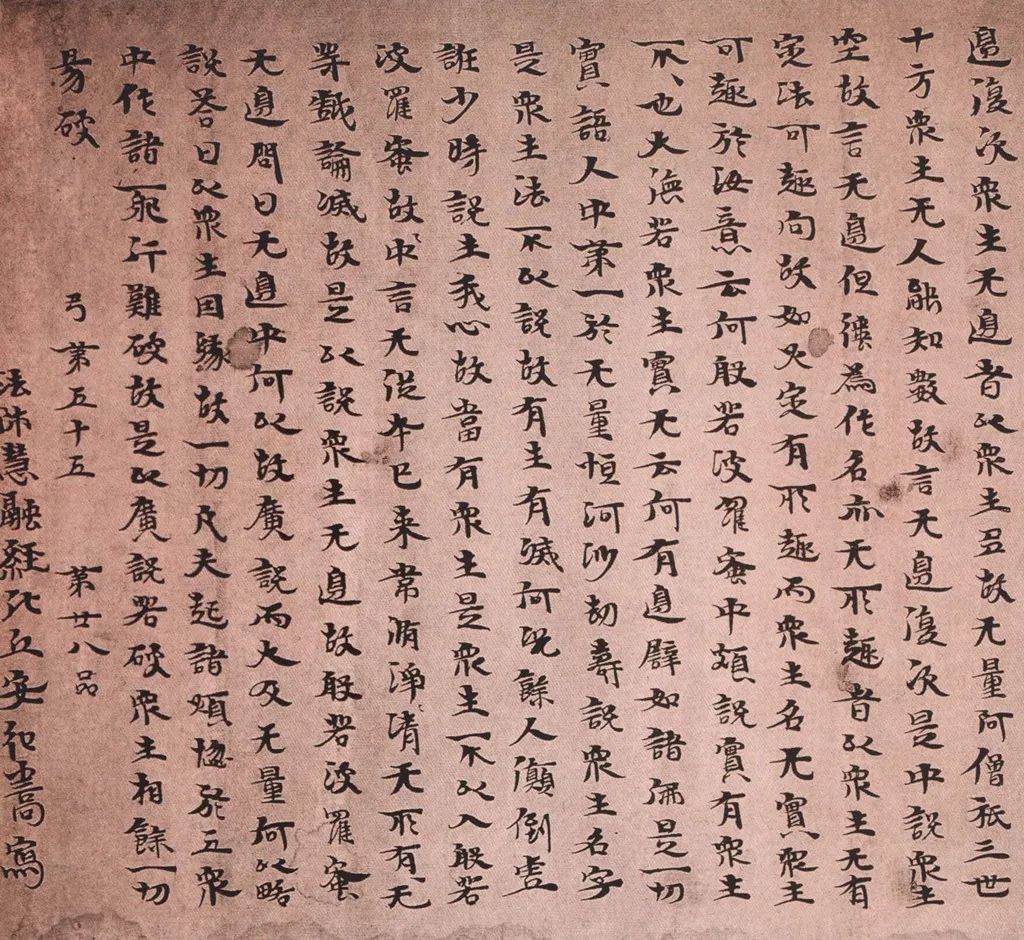 邊復次衆生无邊者以衆生多故无量阿僧祇三世
十方衆生无人能知數故言无邊復次是中說衆生
空故言无邊但彊為作名亦无所趣者以衆生无有
定法可趣向故如火定有所趣而衆生名无實衆生
可趣於汝意云何般若波羅蜜中頗說實有衆生
不、也大德若衆生實无云何有邊譬如諸佛是一切
實語人中第一於无量恒河沙劫壽說衆生名字
是衆生法不以說故有生有滅何況餘人顛倒虛
誑少時說生我心故當有衆生是衆生不以入般若
波羅蜜故中言无從本已来常清淨清无所有无
等戲論滅故是以說衆生无邊故般若波羅蜜
无邊問曰无邊中何以故廣說而大及无量何以略
說荅曰以衆生因緣故一切凡夫起諸煩惱於五衆
中作諸邪行難破故是以廣說若破衆生相餘一切
易破
弓第五十五 第廿八品
法師慧融經比丘安弘嵩寫